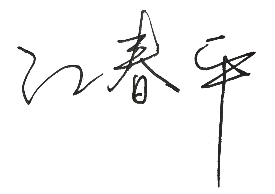 江春平